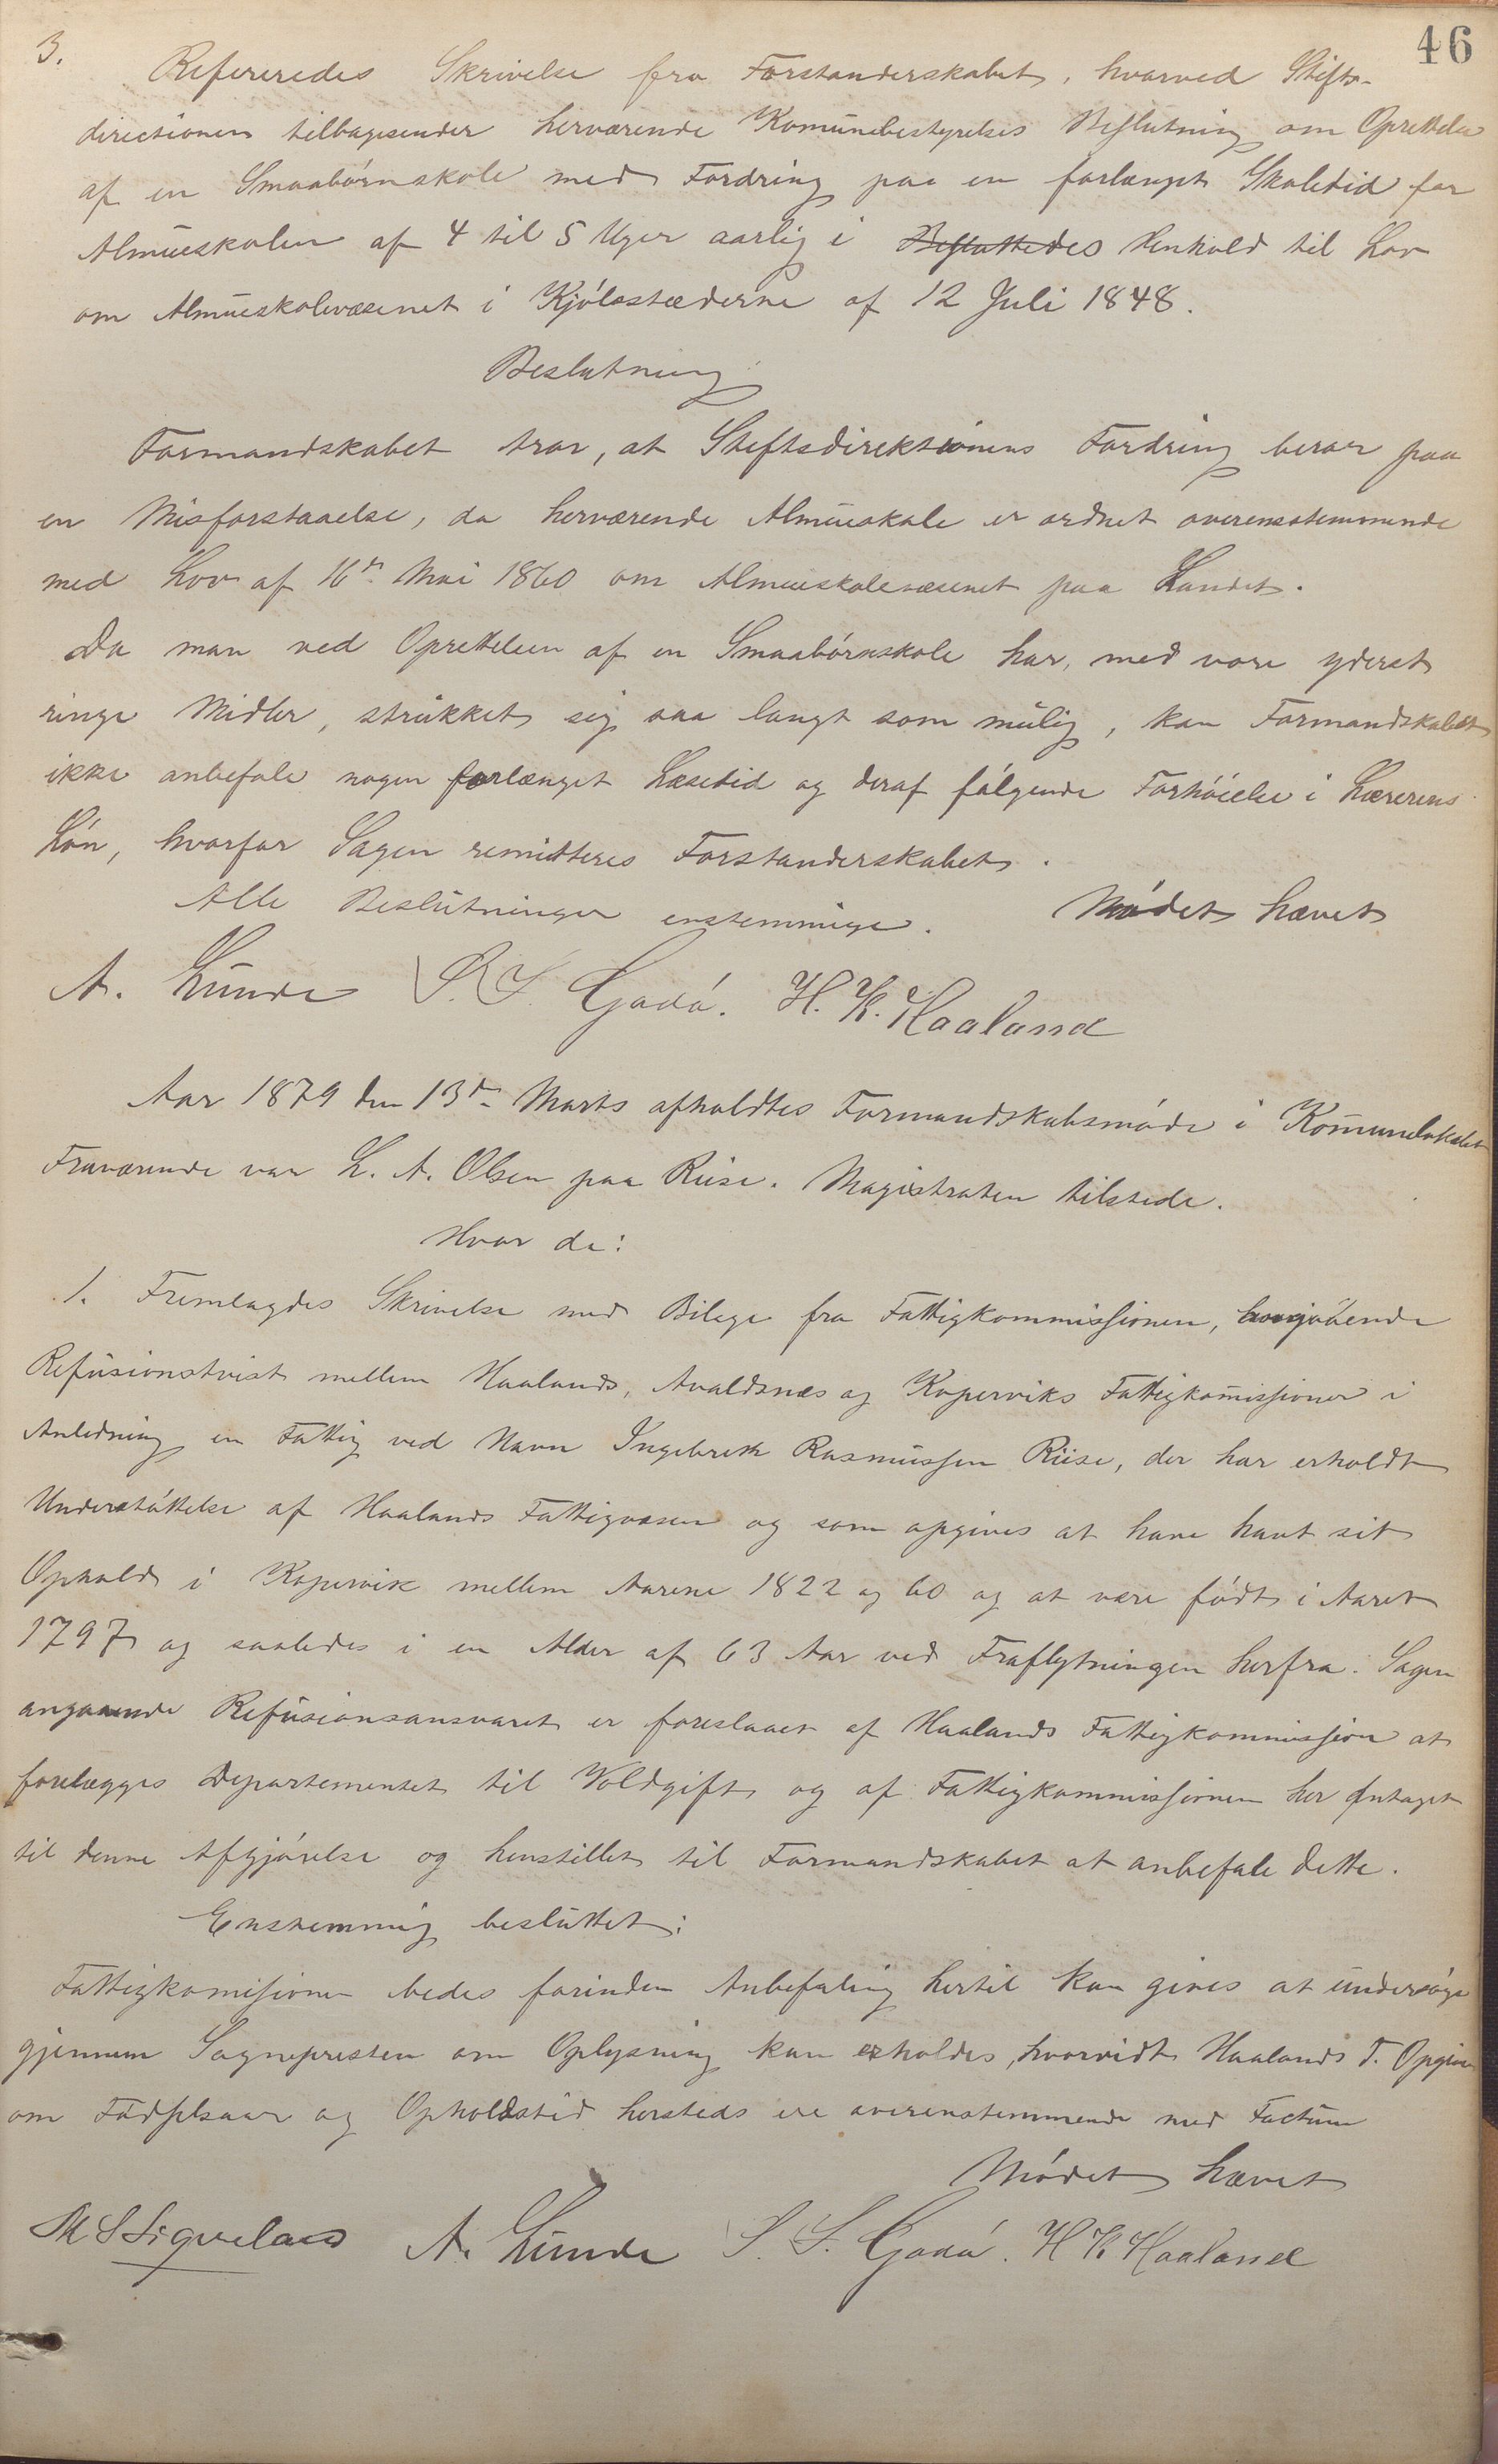 46
3. Refereredes Skrivelse fra Forstanderskabet, hvorved Stifts-
directionen tilbagesender herværende Komūnebestyrelses Beslutning om Oprettelse
af en Smaabørnskole med Fordring paa en forlænget Skoletid for
Almueskolen af 4 til 5 Uger aarlig i Besluttedes Henhold til Lov
om Almueskolevæsenet i Kjøbstæderne af 12 Juli 1848.
Beslutning
Formandskabet tror, at Stiftsdirektionens Fordring beror paa
en Misforstaaelse, da herværende Almueskole er ordnet overensstemmende
med Lov af 16de Mai 1860 om Almueskolevæsenet paa Landet.
Da man ved Oprettelsen af en Smaabørnskole har, med vore yderst
ringe Midler, strukket sig saa langt som mulig, kan Formandskabet
ikke anbefale nogen forlænget Læsetid og deraf følgende Forhøielse i Lærerens
Løn, hvorfor Sagen remitteres Forstanderskabet.
Alle Beslutninger enstemmige. Mødet hævet
A. Lunde S. S. Gadø. H. K. Haaland
Aar 1879 den 13de Marts afholdtes Formandskabsmøde i Komūnelokalet
Fraværende var L. A. Olsen paa Reise. Magistraten tilstede.
Hvor da:
1. Fremlagdes Skrivelse med Bilage fra Fattigkommissionen, angaaende
Refusionstvist mellem Haalands, Avaldsnes og Koperviks Fattigkomissioner i
Anledning en Fattig ved Navn Ingebret Rasmussen Riise, der har erholdt
Understøttelse af Haalands Fattigvæsen og som opgives at have havt sit
Ophold i Kopervik mellem Aarene 1822 og 60 og at være født i Aaret
1797 og saaledes i en Alder af 63 Aar ved Fraflytningen herfra. Sagen
angaaende Refusionsansvaret er foreslaaet af Haalands Fattigkommission at
forelægges Departementet til Voldgift og af Fattigkommissionen her antaget
til denne Afgjørelse og henstillet til Formandskabet at anbefale dette.
Enstemmig besluttet:
Fattigkomissionen bedes forinden Anbefaling hertil kan gives at undersøge
gjennem Sognepresten om Oplysning kan erholdes, hvorvidt Haalands F. Opgive
om Fødselsaar og Opholdstid hersteds ere overenstemmende med Factum
Mødet hævet
A. Lunde S. S. Gadø. H K Haaland